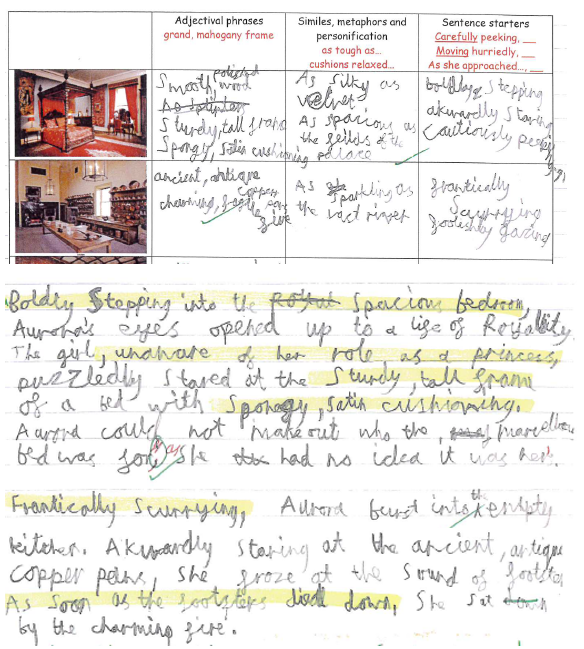 Adjectival phrases
grand, mahogany frame
Similes, metaphors and
personification
as tough as...
cushions relaxed...
Sentence starters
Carefully peeking, __
Moving hurriedly, __
As she approached..., __
Smooth, polished wood
Sturdy, tall frame
Spongy, satin cushioning
As silky as
velvet
As spacious as
the feilds of the
pallace
boldly, Stepping
akwardly Staring
cautiously
ancient, antique
charming, fire
copper
As sparkling as
the river
frantically
Scurrying
foolishly gazing
Boldly Stepping into the Royal spacious bedroom,
Aurora's eyes opened up to a life of
The girl, unaware of her role as a princess,
puzzledly Stared at the Sturdy, tall frame
of a bed with Spongy, satin cushioning.
Aurora could not makeout who the,
bed was for She had no idea it was her's.
Frantically Scurrying, Aurora burst into the empty
kitchen. Akwardly Staring at the ancient, antique
copper pans, She froze at the sound of
As Soon as the footsteps died down, She Sat down
by the charming fire.